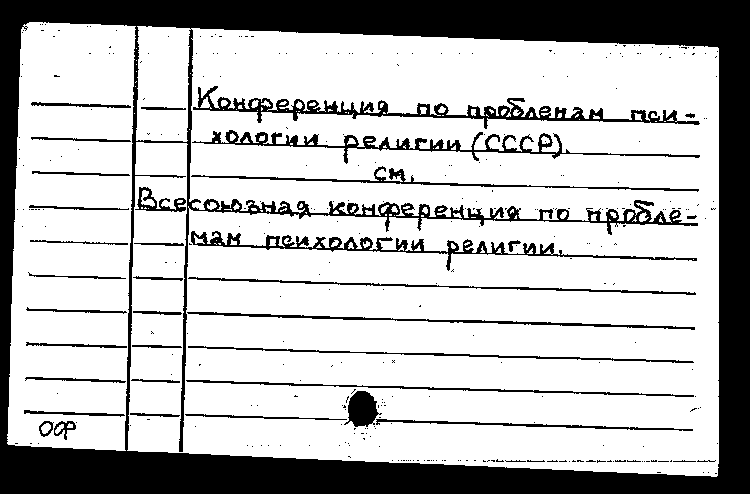 Конференция по проблемам пси-
хологии религии (СССР).
см.
Всесоюзная конференция по пробле-
мам психологии религии.
ООР